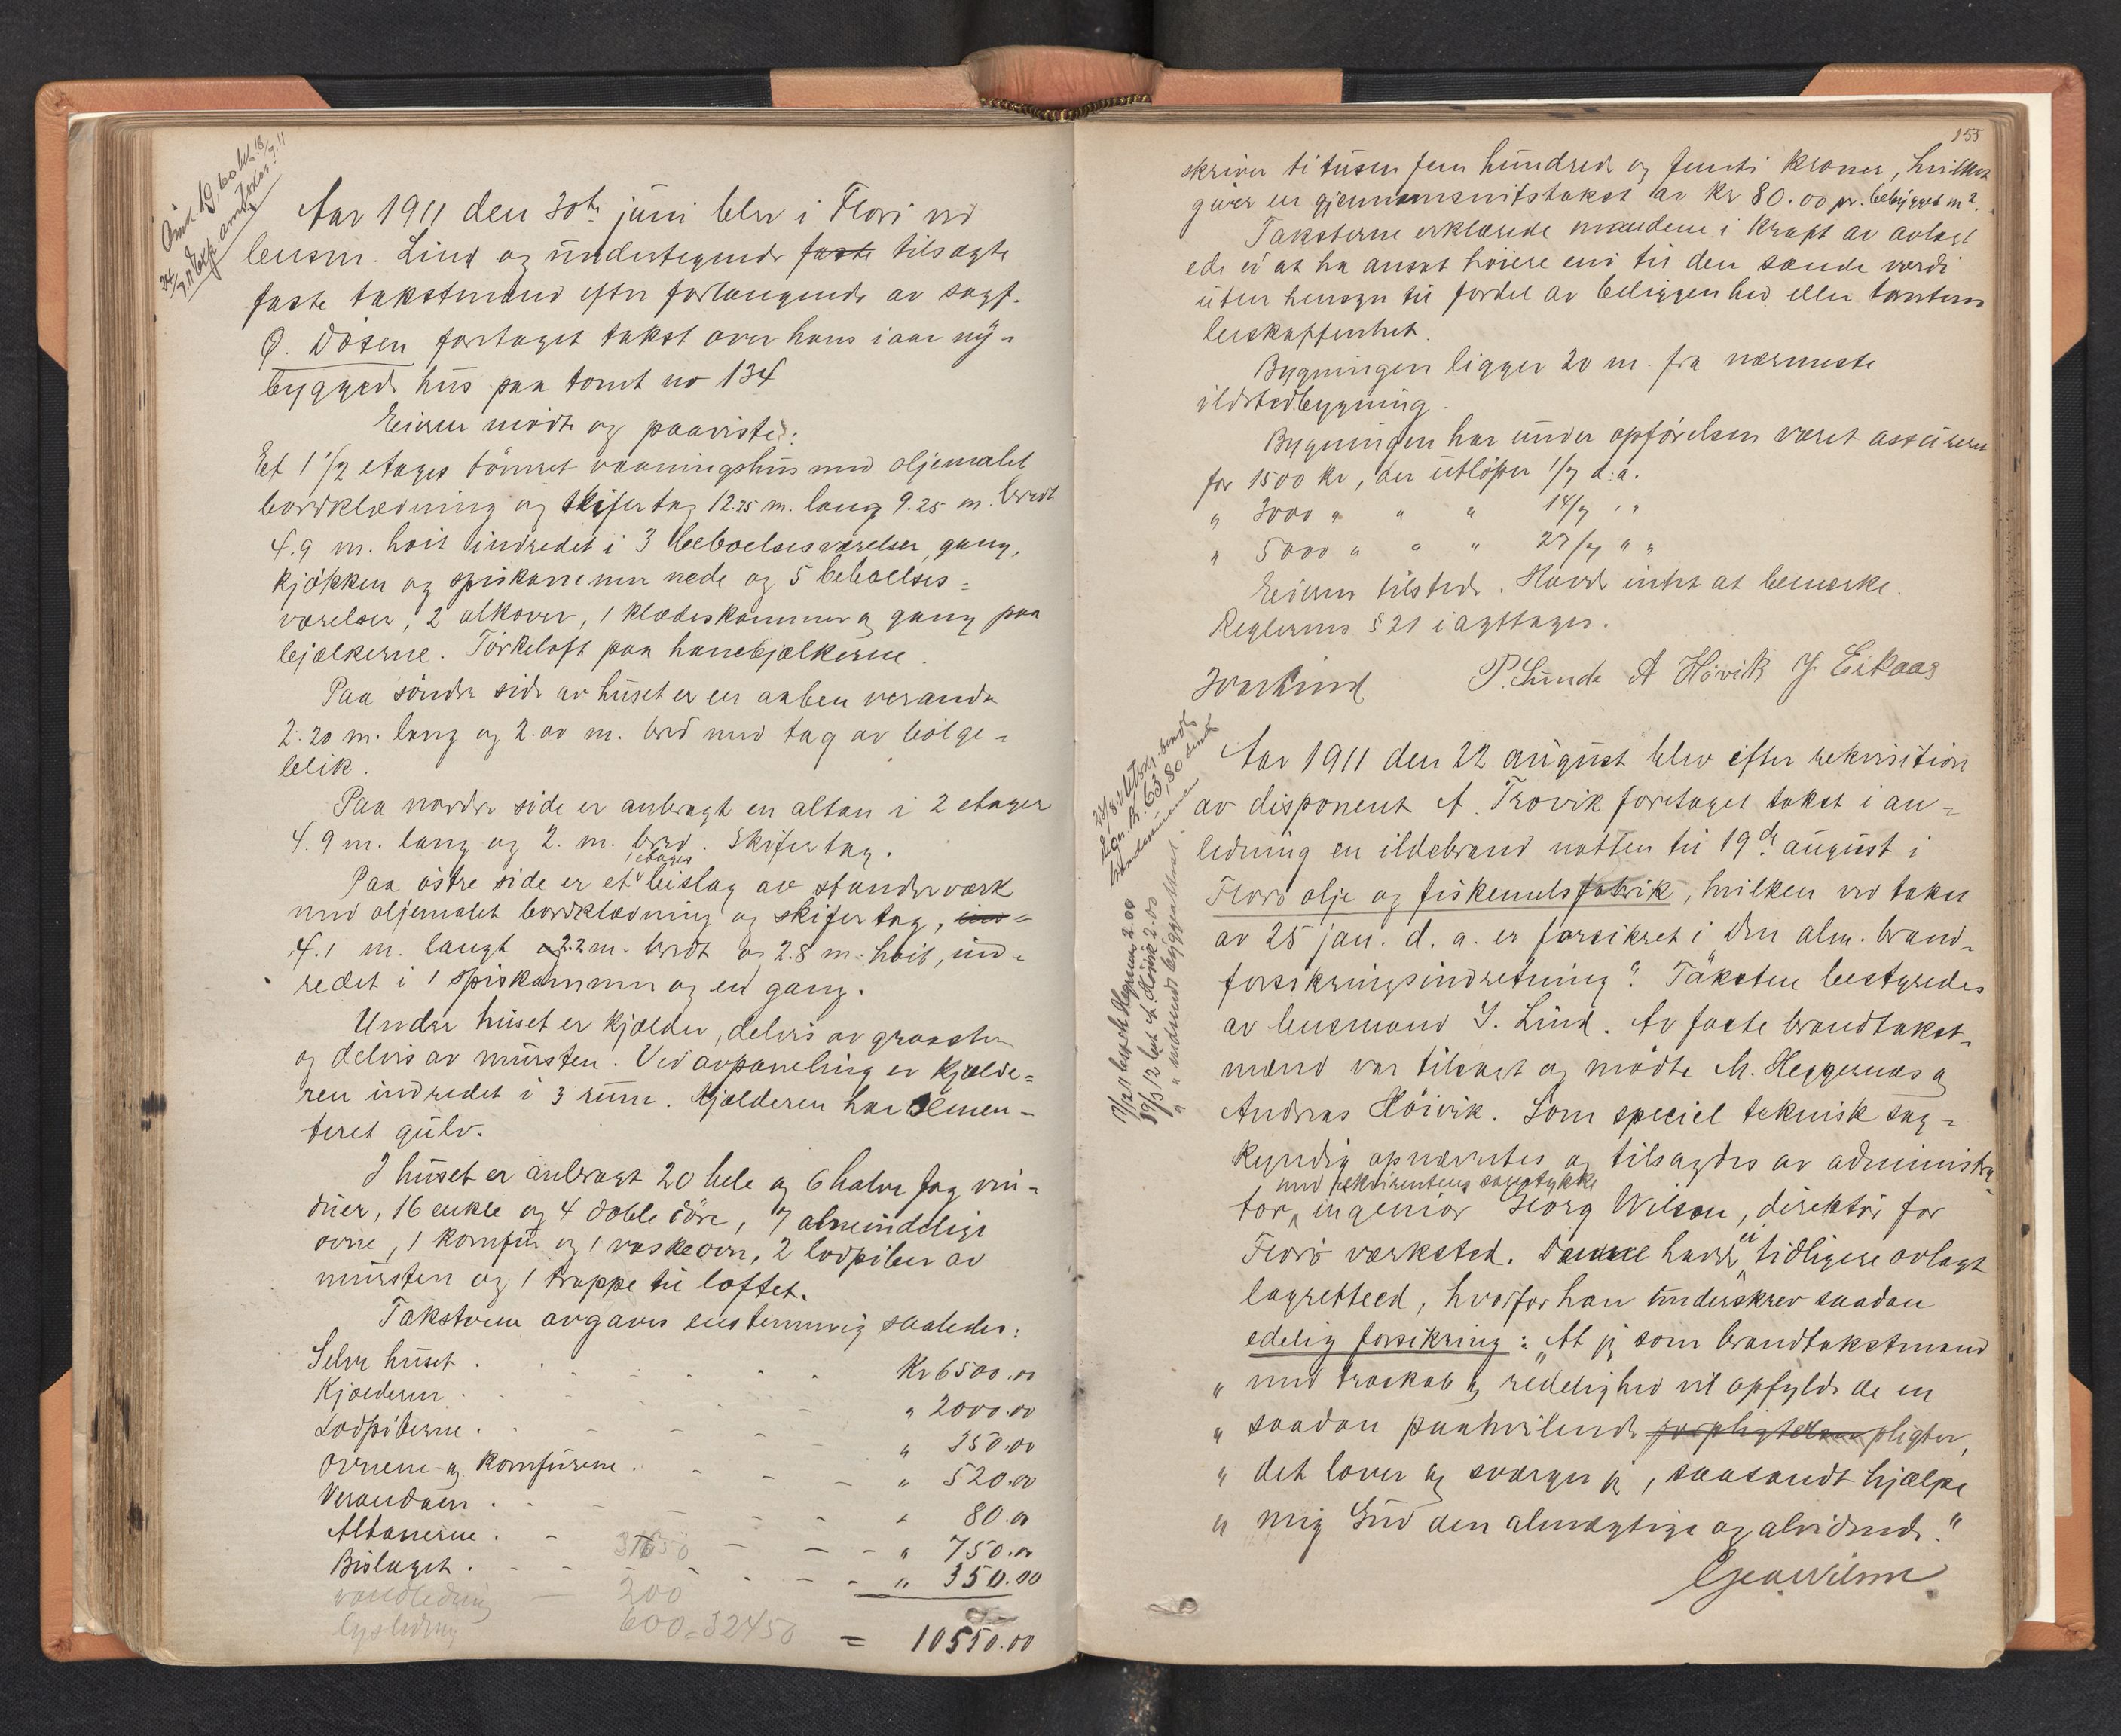 Aar 1911 den 30te juni blev i Florö ved
lensm. Lind og undertegnede faste tilsagte
faste takstmænd efter forlangende av sagf.
Ø. Dösen foretaget takst over hans iaar ny-
byggede hus paa tomt no 134
Eieren mödte og paaviste:
Et 1 1/2 etages tömret vaaningshus med oljemalet
bordklædning og skifertag 12.25 m. lang 9.25 m. bredt
4.9 m. höit indredet i 3 beboelsesværelser, gang,
kjökken og spiskammer nede og 5 beboelses-
værelser, 2 alkover, 1 klædeskammer og gang paa
bjælkerne. Törkeloft paa hanebjælkerne.
Paa söndre side av huset er en aaben veranda
2.20 m. lang og 2.00 m. bred med tag av bölge-
blik.
Paa nordre side er anbragt en altan i 2 etager
4.9 m. lang og 2. m. bred. Skifertag.
Paa östre side er et 1 etages bislag av stenderværk
med oljemalet bordklædning og skifertag, ind-
4.1 m. langt og 2.2 m. bredt og 2.8 m. höit, ind-
redet i 1 spiskammer og en gang.
Under huset er kjælder, delvis av graasten
og delvis av mursten. Ved avpaneling er kjælde-
ren indredet i 3 rum. Kjælderen har semen-
teret gulv.
I huset er anbragt 20 hele og 6 halve fag vin-
duer, 16 enkle og 4 doble döre, 7 almindelige
ovne, 1 komfur og 1 vaskeovn, 2 lodpiber av
mursten og 1 trappe til loftet.
Taksterne avgaves enstemmig saaledes:
Selve huset . Kr 6500.00
Kjælderen . " 2000.00
Lodpiberne . " 350.00
Ovnene og komfurene . " 520.00
Verandaen . " 80.00
Altanerne . 31650 " 750.00
Bislaget . " 350.00
vandledning 200
lysledning 600 = 32450 = 10550.00
155
skriver titusen fem hundrede og femti kroner, hvilket
giver en gjennemsnitstakst av kr 80.00 pr. bebygget m2.
Taksterne erklærede mændene i kraft av avlagt
ede ei at ha ansat höiere end til den sande værdi
uten hensyn til fordel av beliggenhed eller tomtens
beskaffenhet.
Bygningen ligger 20 m. fra nærmeste
ildstedbygning.
Bygningen har under opförelsen været assurere
for 1500 kr, der utlöper 1/7 d.a.
" 3000 " " " 14/7 " "
" 5000 " " " 27/7 " "
Eieren tilstede. Havde intet at bemerke.
Reglernes § 21 iagttages.
Ivar Lind P. Sunde A Hövik J Eikaas
Aar 1911 den 22 august blev efter rekvisition
av disponent A. Trovik foretaget takst i an-
ledning en ildebrand natten til 19de august i
Florö olje og fiskemelsfabrik, hvilken ved takst
av 25 jan. d. a. er forsikret i "Den alm. brand-
forsikringsindretning". Taksten bestyredes
av lensmand I. Lind. Av faste brandtakst-
mænd var tilsagt og mödte M. Heggernæs og
Andreas Höivik. Som speciel teknisk sag-
kyndig opnævntes og tilsagdes av administra-
med rekvirentens samtykke
tor, ingeniör Georg Wilson, direktör for
Florö værksted. Denne havde ei tidligere avlagt
lagretteed, hvorfor han underskrev saadan
edelig forsikring: "At jeg som brandtakstmand
" med troskab og redelighed vil opfylde de en
" saadan paahvilende forpligtelser pligter,
" det lover og sværger jeg, saasandt hjælpe
" mig Gud den almægtige og alvidende."
Geo. Wilson